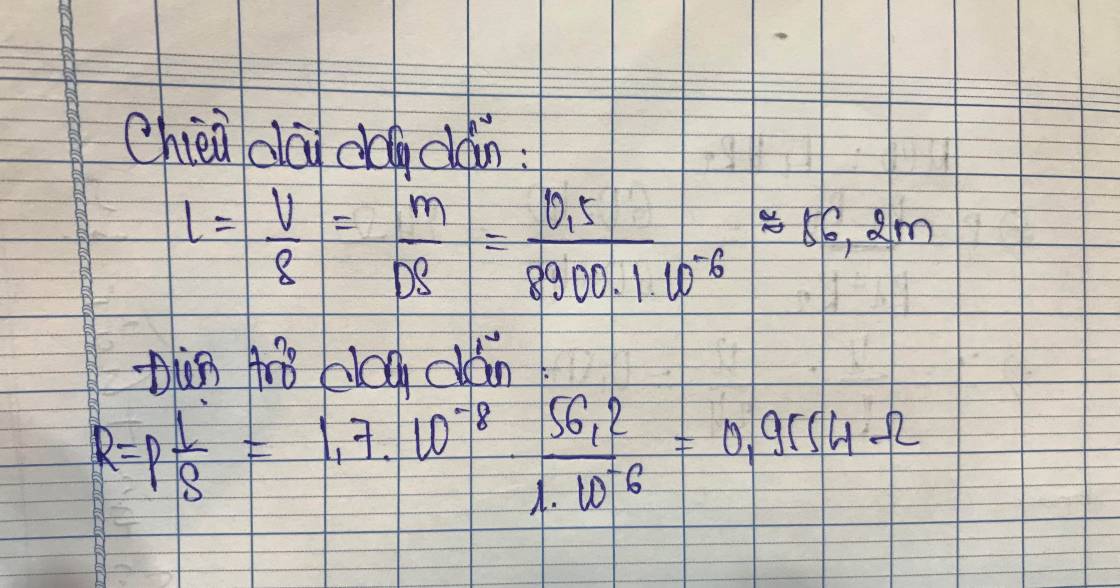 Chiều dài dây dẫn:
l = V/S = m/DS = 0,5/8900.1.10⁻⁶ ≈ 56,2m
Điện trở dây dẫn:
R = ρ l/S = 1,7.10⁻⁸ . 56,2/1.10⁻⁶ = 0,9554 Ω